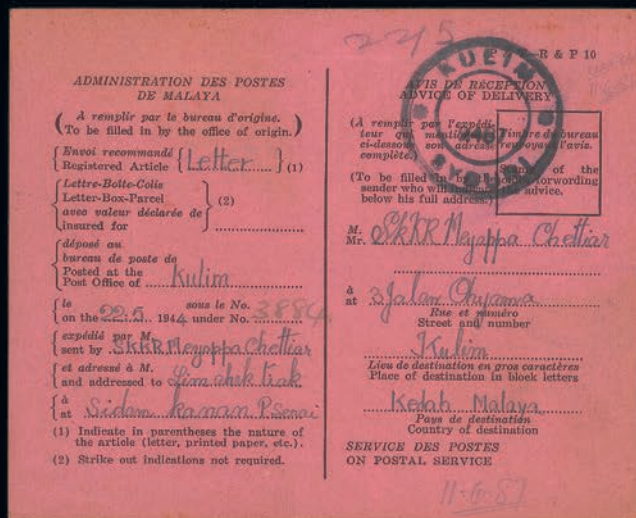 225
R & P 10
ADMINISTRATION DES POSTES
DE MALAYA
(À remplir par le bureau d'origine.
To be filled in by the office of origin.)
Envoi recommandé
Registered Article { Letter } (1)
Lettre-Boîte-Colis
Letter-Box-Parcel
avec valeur déclarée de
insured for
(2)
déposé au
bureau de poste de
Posted at the
Post Office of Kulim
le sous le No.
on the 22.5. 1944 under No. 3884
expédié par M.
sent by SKKR Meyappa Chettiar
et adressé à M.
and addressed to Lim ahsk trak
à
at Sidam kanan P. Senai
(1) Indicate in parentheses the nature of
the article (letter, printed paper, etc.).
(2) Strike out indications not required.
KULIM
AVIS DE RÉCEPTION
ADVICE OF DELIVERY
(À remplir par l'expédi-
teur qui
ci-dessous son adresse
complète.)
(To be filled in by
sender who will
below his full address.)
Timbre du bureau
renvoyant l'avis.
Stamp of the
forwording
the advice.
M.
Mr. SKKR Meyappa Chettiar
à
at 3 Jalan Ohyama
Rue et numéro
Street and number
Kulim
Lieu de destination en gros caractères
Place of destination in block letters
Kedah Malaya
Pays de destination
Country of destination
SERVICE DES POSTES
ON POSTAL SERVICE